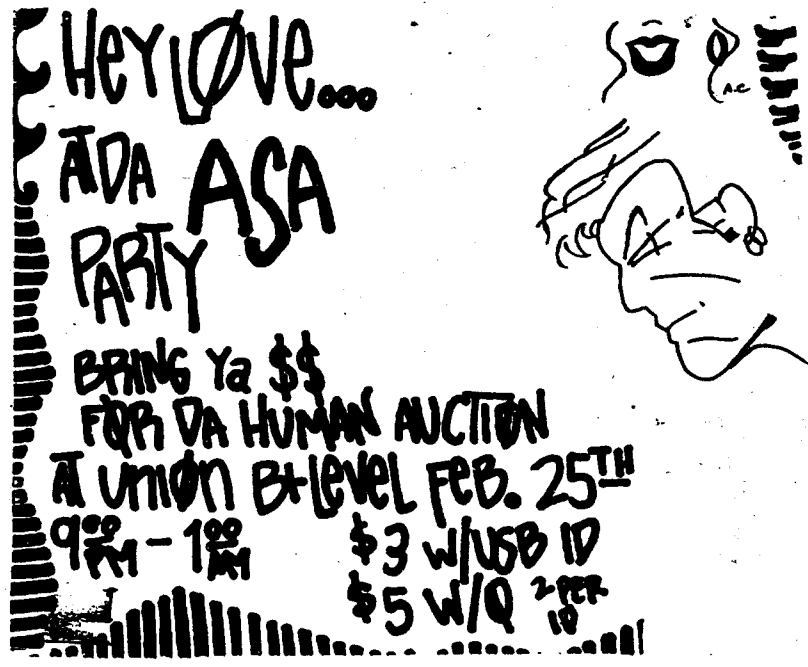 HeY LØVe...
AT DA ASA
PARTY
BRING Ya $$
FØR DA HUMAN AUCTIØN
AT UNIØN B+LEVEL FEB. 25TH
9:00 PM - 1:00 AM $3 W/USB ID
$5 W/Q 2 PER ID
A.C